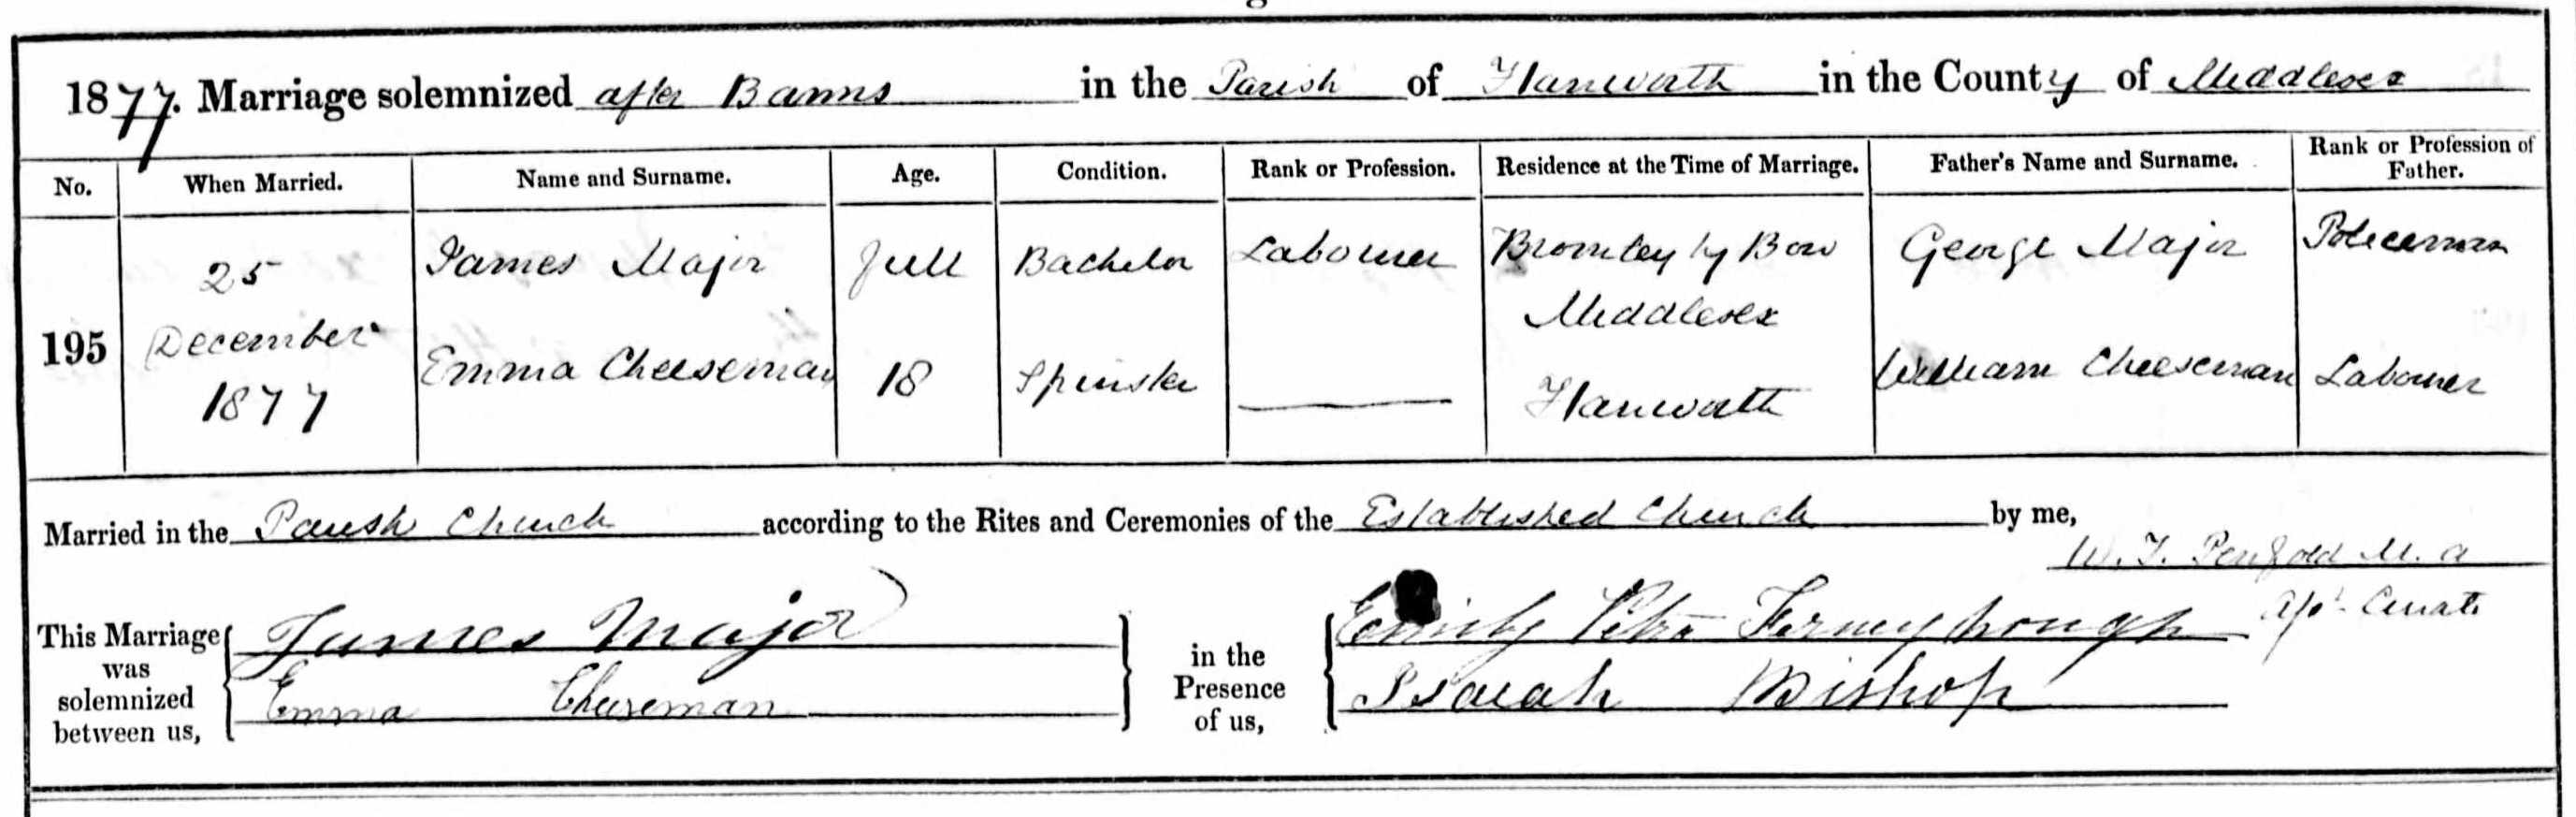 1877. Marriage solemnized after Banns in the Parish of Hanworth in the County of Middlesex
No. When Married. Name and Surname. Age. Condition. Rank or Profession. Residence at the Time of Marriage. Father's Name and Surname. Rank or Profession of Father.
195 25 December 1877
James Major Full Bachelor Labourer Bromley by Bow Middlesex George Major Policeman
Emma Cheeseman 18 Spinster Hanworth William Cheeseman Labourer
Married in the Parish Church according to the Rites and Ceremonies of the Established Church by me,
W. T. Penfold M. A
Curate
This Marriage was solemnized between us, James Major
Emma Cheeseman
in the Presence of us, Emily Fernyhough
Isaiah Bishop